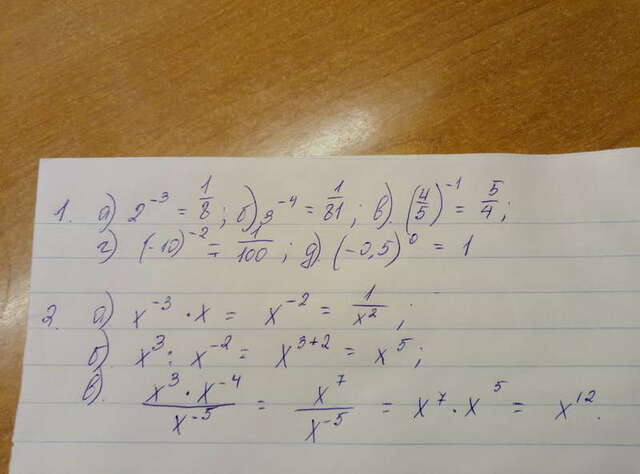 1. а) 2⁻³ = 1/8; б) 3⁻⁴ = 1/81; в). (4/5)⁻¹ = 5/4;
г) (-10)⁻² = 1/100; д). (-0,5)⁰ = 1
2. а) x⁻³ · x = x⁻² = 1/x²;
б) x³ : x⁻² = x³⁺² = x⁵;
в). (x³ · x⁻⁴)/x⁻⁵ = x⁷/x⁻⁵ = x⁷ · x⁵ = x¹².